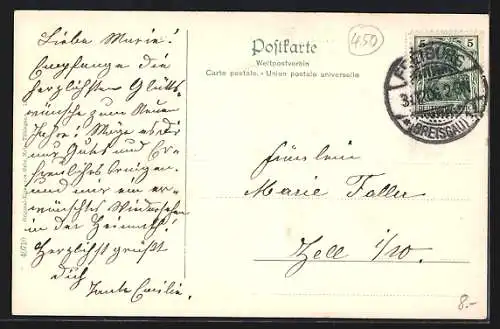 Liebe Marie!
Empfange die
herzlichsten Glücks-
wünsche zum Neuen
Jahre! Möge es dir
nur Gutes und Er-
freuliches bringen.
und mir ein er-
wünschtes Wiedersehen
in der Heimath!
Herzlichst grüßt
dich
Tante Emilie.
Postkarte
Weltpostverein
Carte postale. - Union postale universelle
450
5 5
FREIBURG
BREISGAU
Fräulein
Marie Faller
Zell i/W.
8.-